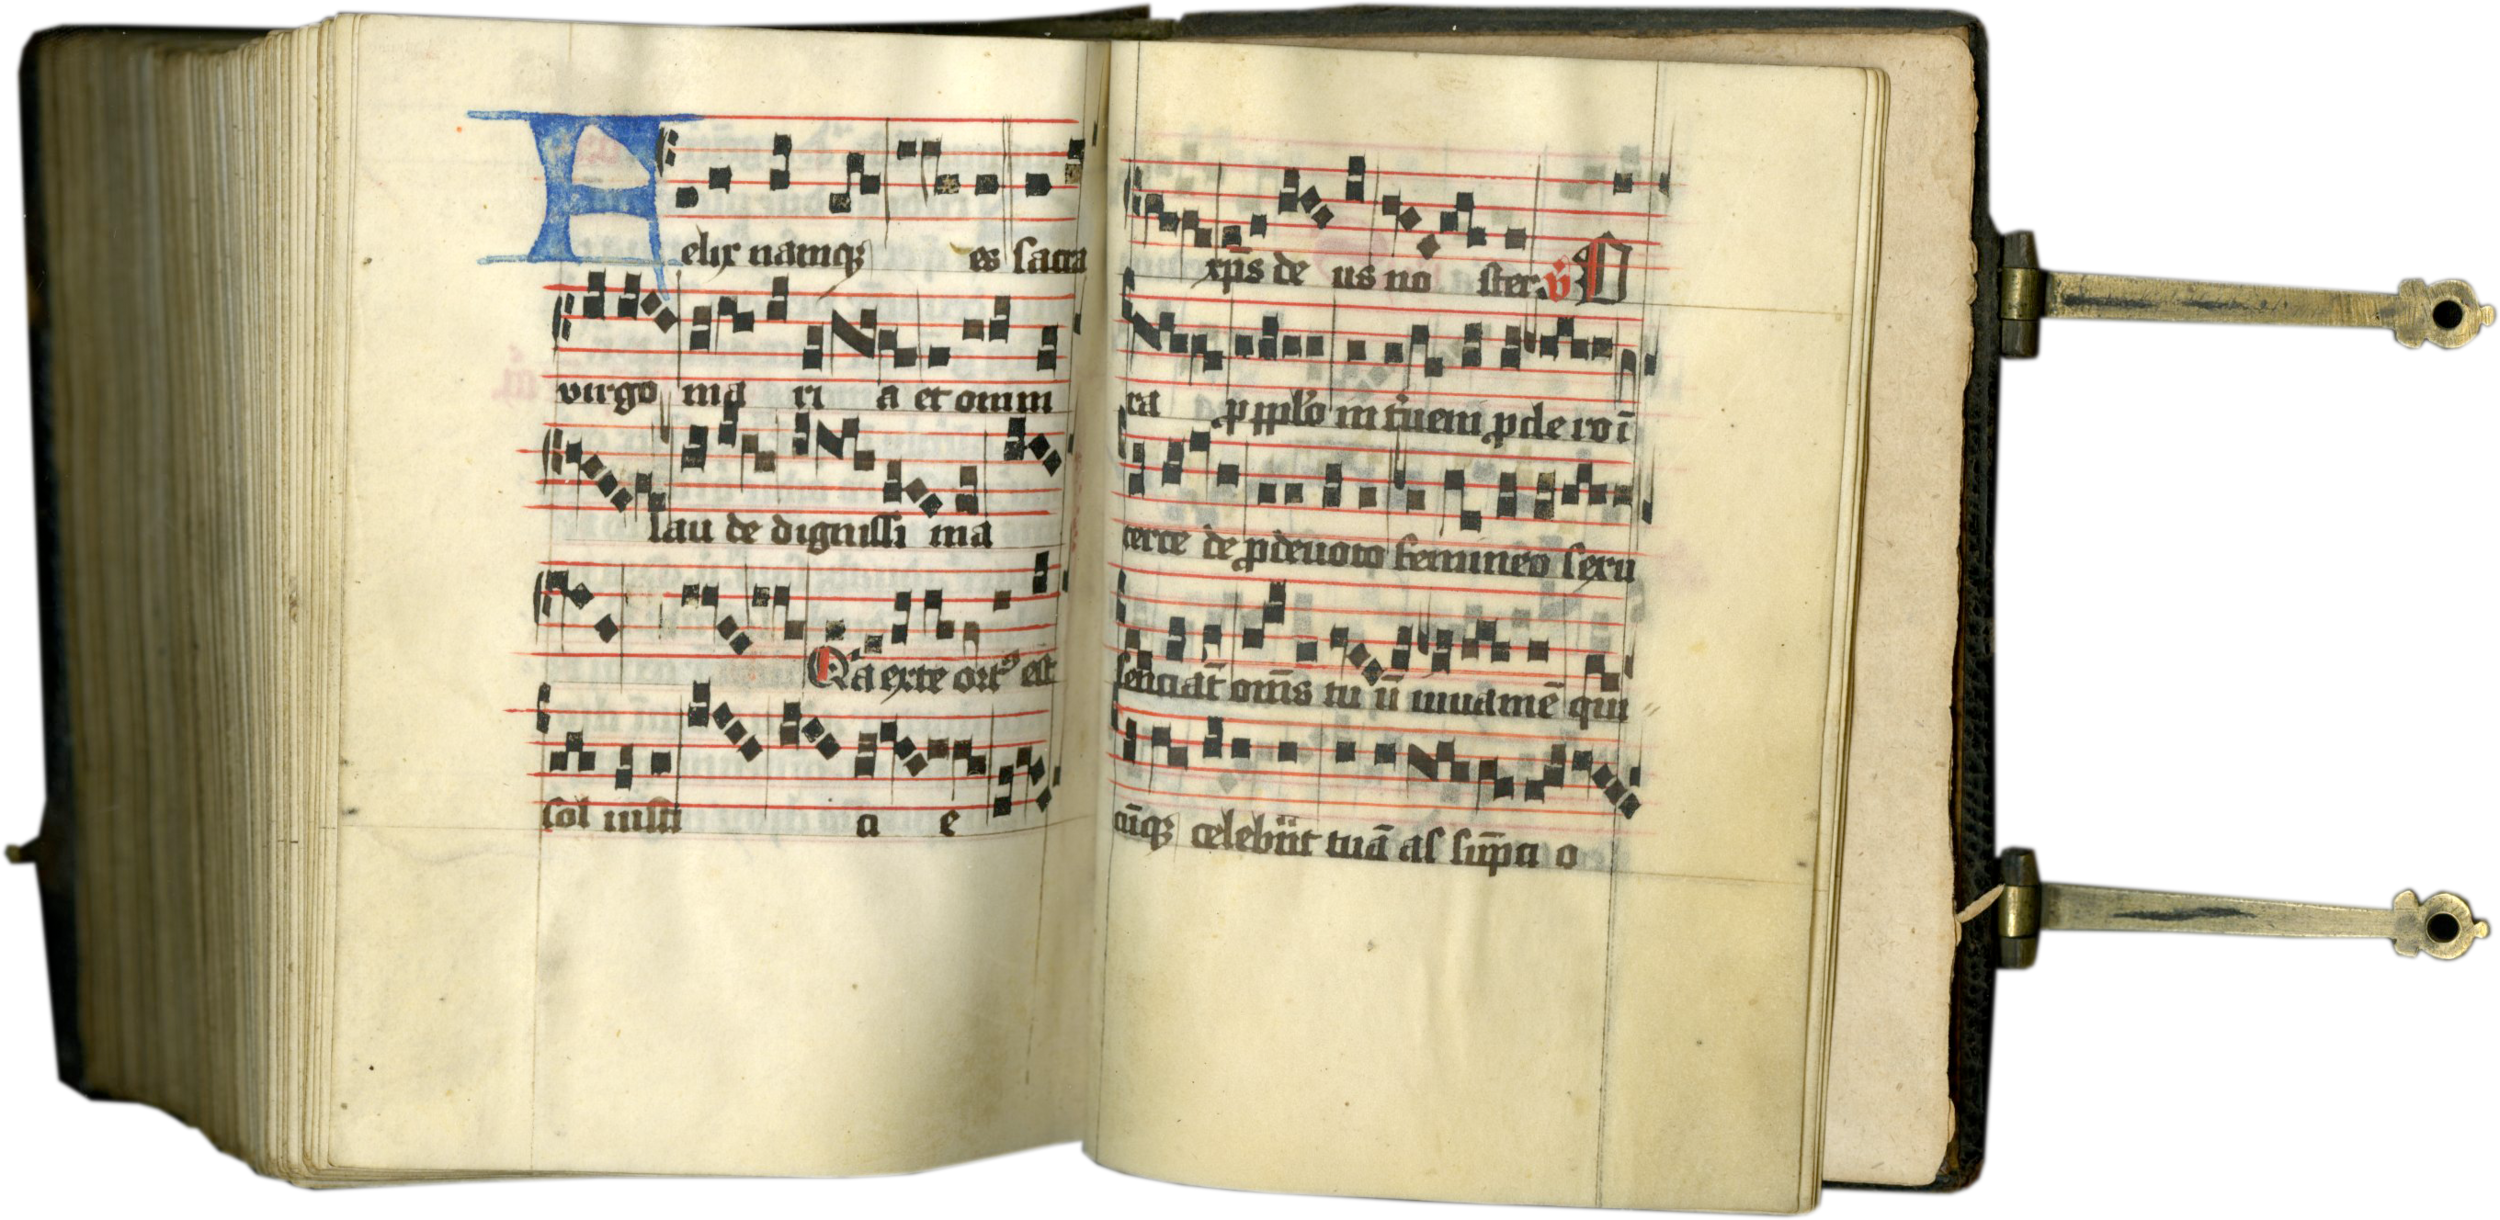 Felix namq; es sacra
virgo ma ri a et omni
lau de dignissi ma
Q̄a ex te ort⁹ est
sol iusti ci e
xp̄s de us no ster. v̄ O
ra p pp̄lo in t̄ueni p cle ro ī
terce de p deuoto femineo sexu
senciāt om̄s tu ū iuuamē qui
cūq; celebrāt tuā as sūpci o